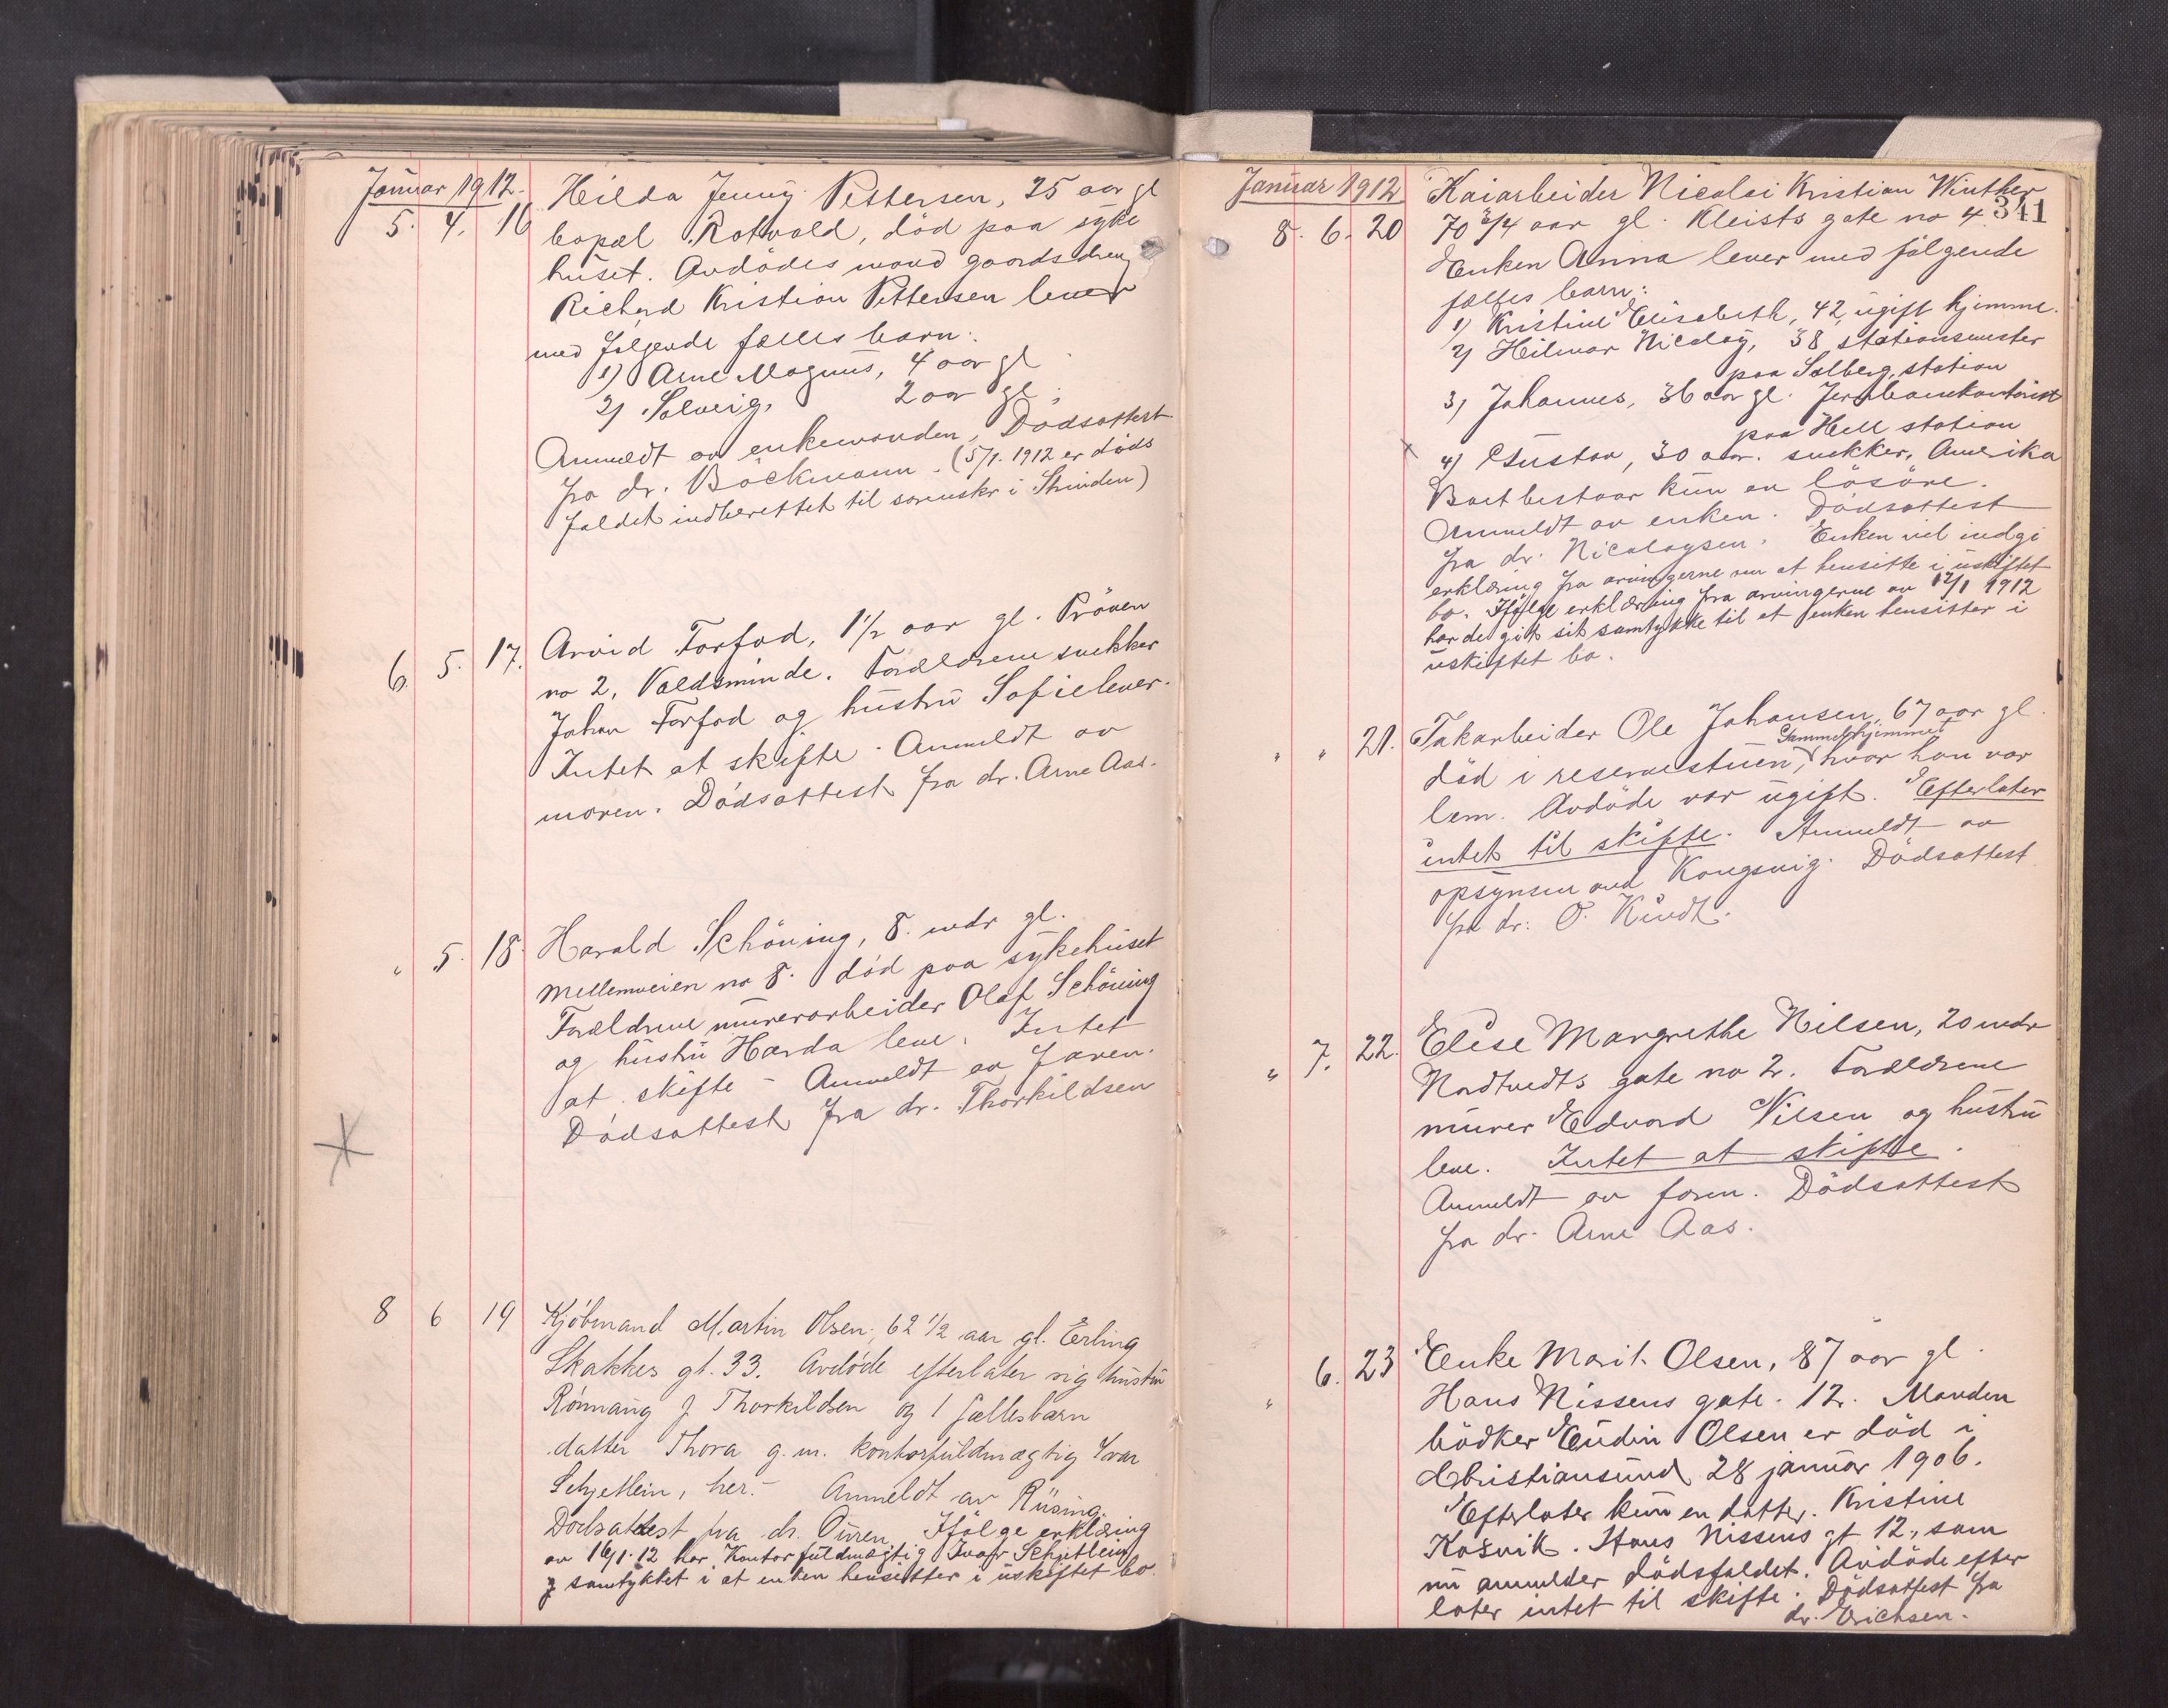 Januar 1912.
5. 4. 16 Hilda Jenny Pettersen, 25 aar gl
bopæl Rotvold, död paa syke
huset. Avdödes mand gaardsdreng
Richard Kristian Pettersen lever
med følgende fælles barn:
1) Arne Magnus, 4 aar gl
2) Solveig, 2 aar gl.
Anmeldt av enkemanden, Dødsattest
fra dr. Böckmann. (5/1. 1912 er døds
faldet indberettet til sorenskr i Strinden)
6. 5. 17. Arvid Forfod, 1 1/2 aar gl. Prøven
no 2, Valdsminde. Forældrene snekker
Johan Forfod og hustru Sofie lever.
Intet at skifte. Anmeldt av
moren. Dödsattest fra dr. Arne Aas.
" 5. 18. Harald Schöning, 8. mdr gl.
Mellemveien no 8. död paa sykehuset
Forældrene murerarbeider Olaf Schöning
og hustru Harda leve. Intet
at skifte - Anmeldt av faren.
Dödsattest fra dr. Thorkildsen
8 6 19 Kjöbmand Martin Olsen, 62 1/2 aar gl. Erling
Skakkes gt. 33. Avdöde efterlater sig hustru
Rönnaug f Thorkildsen og 1 fællesbarn
datter Thora g. m. kontorfuldmægtig Ivar
Schjetlein, her. - Anmeldt av Rüsing.
Dødsattest fra dr. Ouren. Ifölge erklæring
av 16/1. 12 har Kontorfuldmægtig Ivar Schjetlein
samtykket i at enken hensitter i uskiftet bo.
341
Januar 1912
8. 6. 20 Kaiarbeider Nicolai Kristian Winther
70 3/4 aar gl. Kleists gate no 4
Enken Anna lever med følgende
fælles barn:
1) Kristine Elisabeth, 42, ugift hjemme.
2) Hilmar Nicolay, 38, stationsmester
paa Solberg, station
3) Johannes, 36 aar gl. Jernbanekontorist
paa Hell station
4) Gustav, 30 aar. snekker, Amerika
Boet bestaar kun av lösöre.
Anmeldt av enken. Dödsattest
fra dr. Nicolaysen. Enken vil indgi
erklæring fra arvingerne om at hensitte i uskiftet
bo. Ifølge erklæring fra arvingerne av 12/1 1912
har de git sit samtykke til at enken hensitter i
uskiftet bo.
" " 21. Takarbeider Ole Johansen, 67 aar gl.
Gammelhjemmet
död i reservestuen, hvor han var
lem. Avdöde var ugift. Efterlater
intet til skifte. Anmeldt av
opsynsmand Kongsvig. Dödsattest
fra dr. O. Kindt.
" 7. 22. Elise Margrethe Nilsen, 20 mdr
Nordtvedts gate no 2. Forældrene
murer Edvard Nilsen og hustru
leve. Intet at skifte.
Anmeldt av faren. Dödsattest
fra dr. Arne Aas.
" 6. 23 Enke Marit Olsen, 87 aar gl.
Hans Nissens gate. 12. Manden
bödker Eudin Olsen er död i
Christiansund 28 januar 1906.
Efterlater kun en datter. Kristine
Kosvik. Hans Nissens gt 12., som
nu anmelder dödsfaldet. Avdöde efter
later intet til skifte. Dödsattest fra
dr. Erichsen.